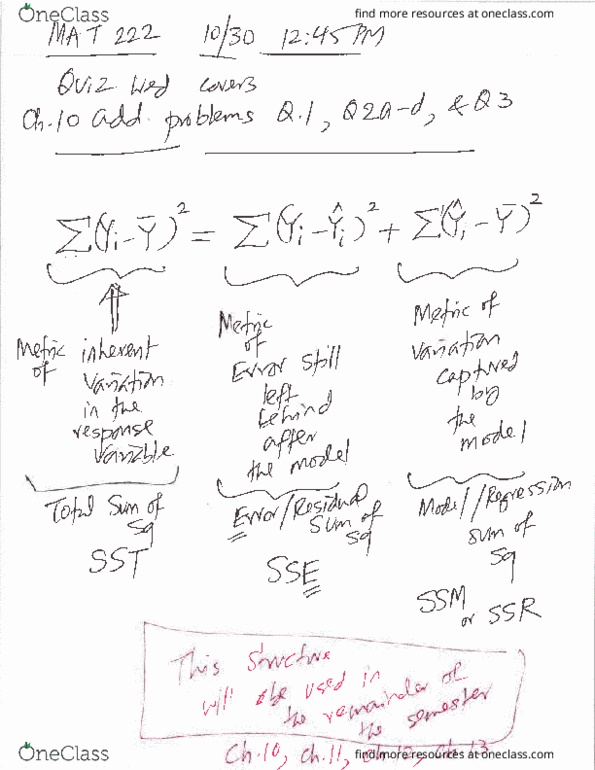 OneClass
find more resources at oneclass.com
MAT 222 10/30 12:45 PM
Quiz Wed covers
Ch.10 add. problems Q.1, Q2a-d, & Q3
∑(Yi-Ȳ)² = ∑(Yi-Ŷi)² + ∑(Ŷi-Ȳ)²
Metric of inherent variation in the response variable
Metric of Error still left behind after the model
Metric of variation captured by the model
Total Sum of Sq
SST
Error/Residual Sum of Sq
SSE
Model/Regression sum of Sq
SSM or SSR
This structure
will be used in
the remainder of
the semester
Ch.10, ch.11,
OneClass
find more resources at oneclass.com